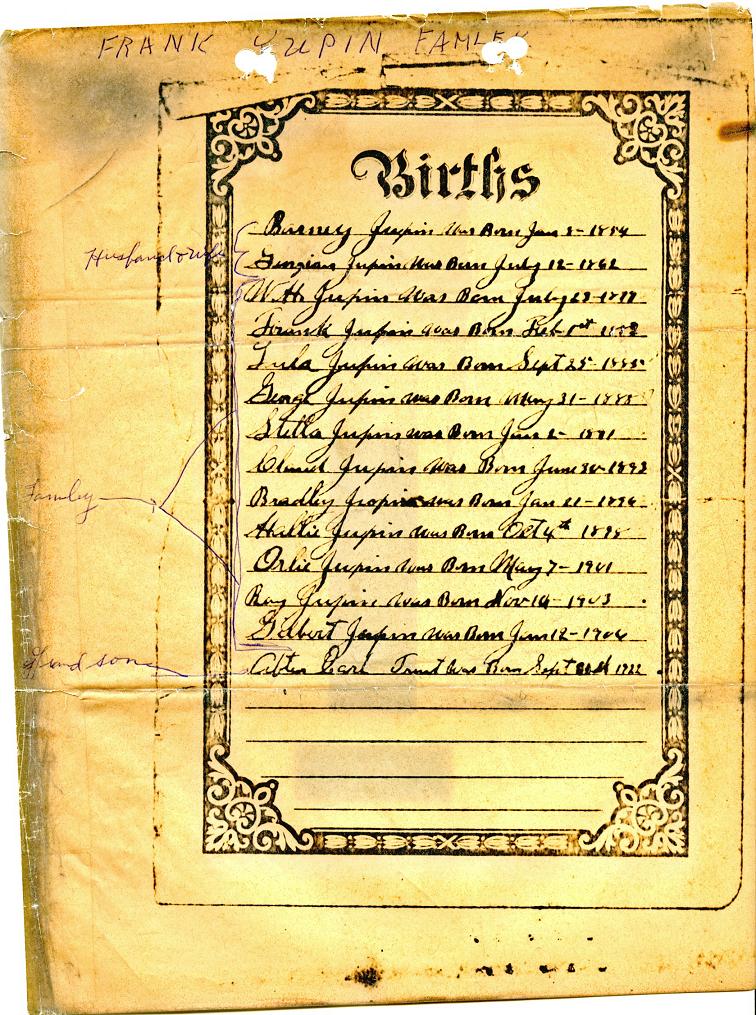 FRANK JUPIN FAMLEY
Births
Barney Jupin Was Born Jan 8-1854
Husband & wife
Georgian Jupin Was Born July 12-1862
W.H. Jupin Was Born July 23-
Frank Jupin was Born Feb 1st
Lula Jupin was Born Sept 25-1885
George Jupin was Born May 31-1888
Stella Jupin was Born Jan 2-1891
Jupin was Born June 30-1893
Famley
Bradley Jupin was Born Jan 21-1896
Hallie Jupin was Born Oct 4th 1898
Orlie Jupin was Born May 7-1901
Ray Jupin was Born Nov 14-1903
Gilbert Jupin was Born Jun 12-1906
Grandson
Earl was Born Sept 1922